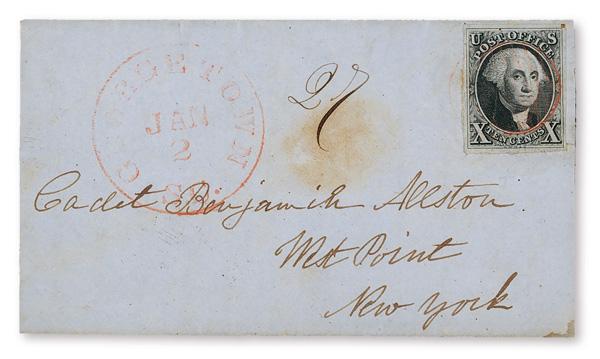 U S
POST OFFICE
X TEN CENTS X
27
GEORGETOWN
JAN
2
Cadet Benjamin Allston
West Point
New York